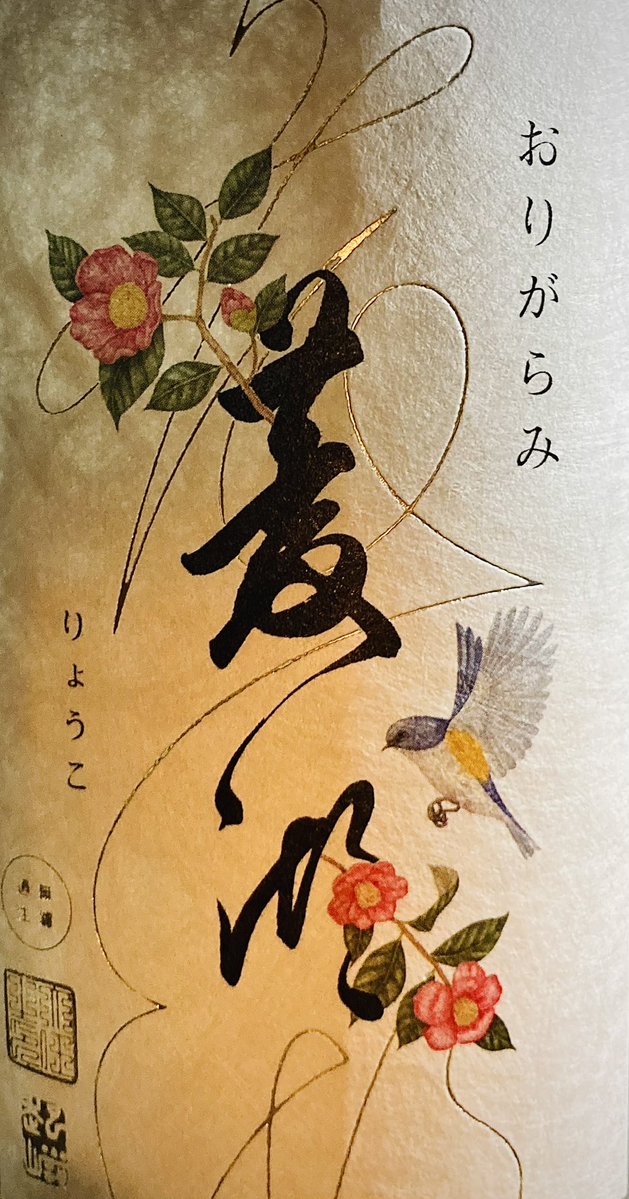 おりがらみ
菱湖
りょうこ